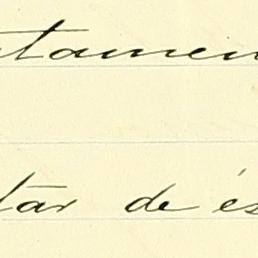 tamen
tar de és